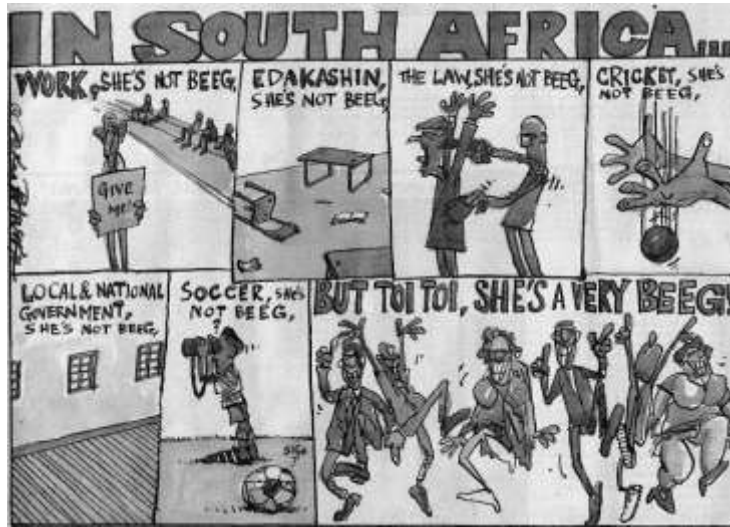 IN SOUTH AFRICA...
WORK, SHE'S NOT BEEG,
GIVE
ME!
EDAKASHIN,
SHE'S NOT BEEG,
THE LAW, SHE'S NOT BEEG,
CRICKET, SHE'S
NOT BEEG,
LOCAL & NATIONAL
GOVERNMENT,
SHE'S NOT BEEG,
SOCCER, SHE'S
NOT BEEG,
?
BUT TOI TOI, SHE'S A VERY BEEG!